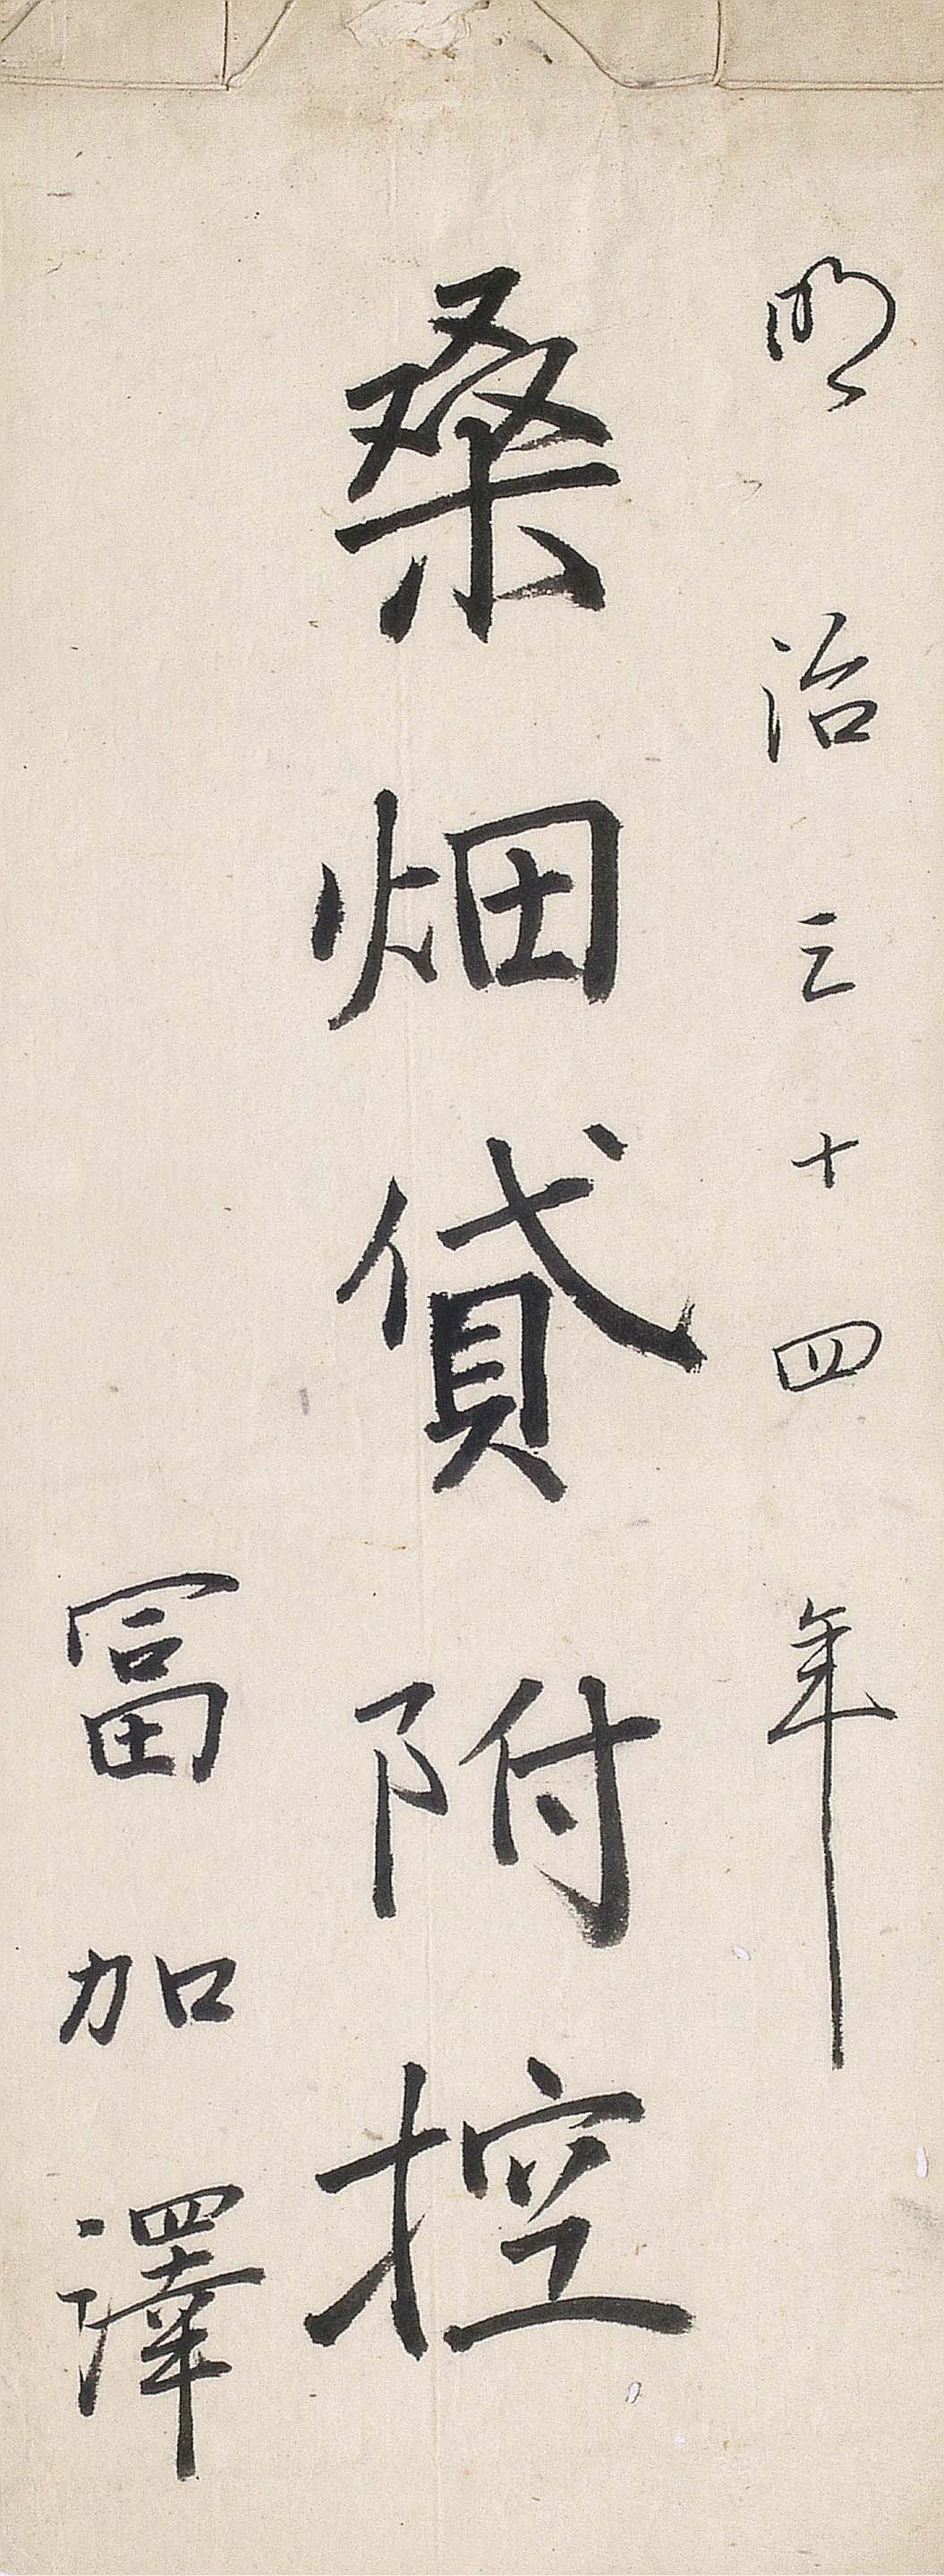 明治三十四年
桑烟貸附控
冨加澤